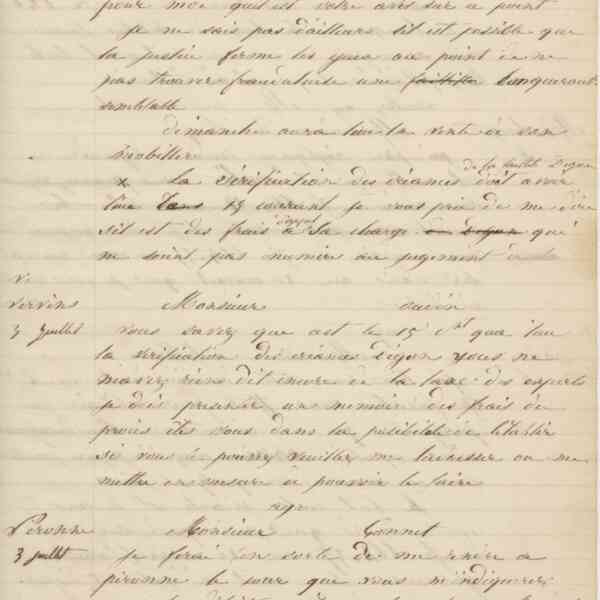 pour moi quel est votre avis sur ce point
je ne sais pas d'ailleurs s'il est posible que
la justice ferme les yeux au point de ne
pas trouver frauduleuse une faillite banqueroute
semblable
dimanche aura lieu la vente de son
mobillier
de la faillite Digon
x La vérification des créances doit avoir
lieu Dans 15 courant je vous prie de me dire
d'appel
s'il est des frais à sa charge qui
ne soient pas au jugement de la
Vervins Monsieur
3 juillet vous savez que cest le 15 ct qua lieu
la verification des créances Digon vous ne
mavez riens dit encore de la taxe des experts
je dois presenter un memoir des frais de
procès êtes vous dans la posibilité de létablir
si vous le pouvez veuillez me ou me
mettre en mesure de pouvoir le faire
agr
Peronne Monsieur Gonnet
3 juillet je ferai en sorte de me rendre a
peronne le jour que vous m'indiquerez